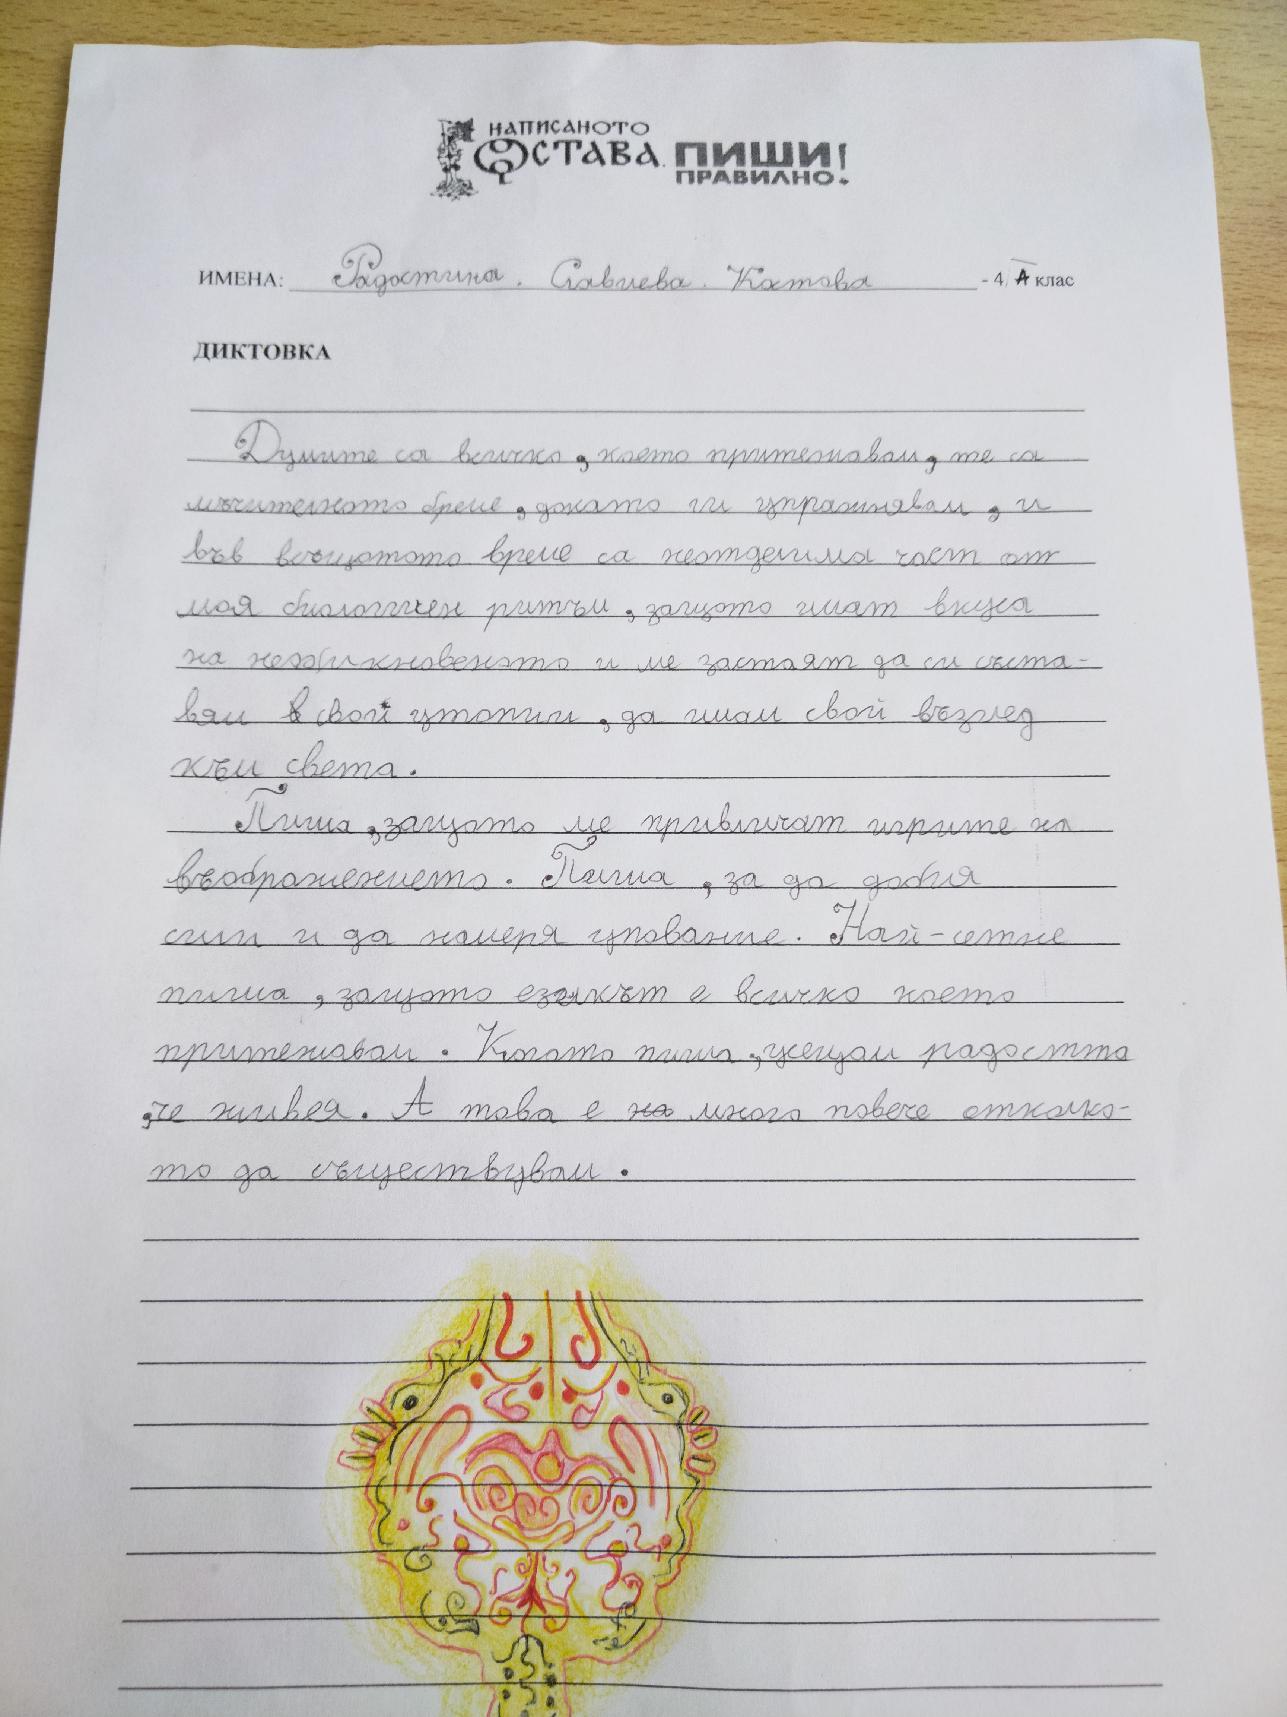 НАПИСАНОТО
ОСТАВА. ПИШИ
ПРАВИЛНО!
ИМЕНА: Радостина. Славчева. Катова - 4 А клас
ДИКТОВКА
Думите са всичко, което притежавам, те са
мъчителното бреме, докато ги упражнявам, и
във всъщотото време са неотделима част от
моя биологичен ритъм, защото имат вкуса
на необикновеното и ме застоят да си съста-
вям в свои утопии, да имам свой възглед
към света.
Пиша, защото ме привличат игрите на
въображението. Пиша, за да добия
сили и да намеря упование. Най-сетне
пиша, защото езикът е всичко което
притежавам. Когато пиша, усещам радостта
,че живея. А това е на много повече отколко-
то да съществувам.